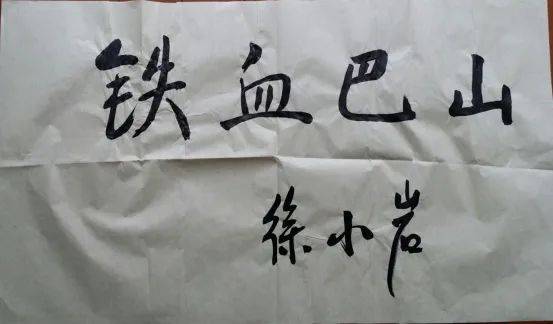 铁血巴山
徐小岩